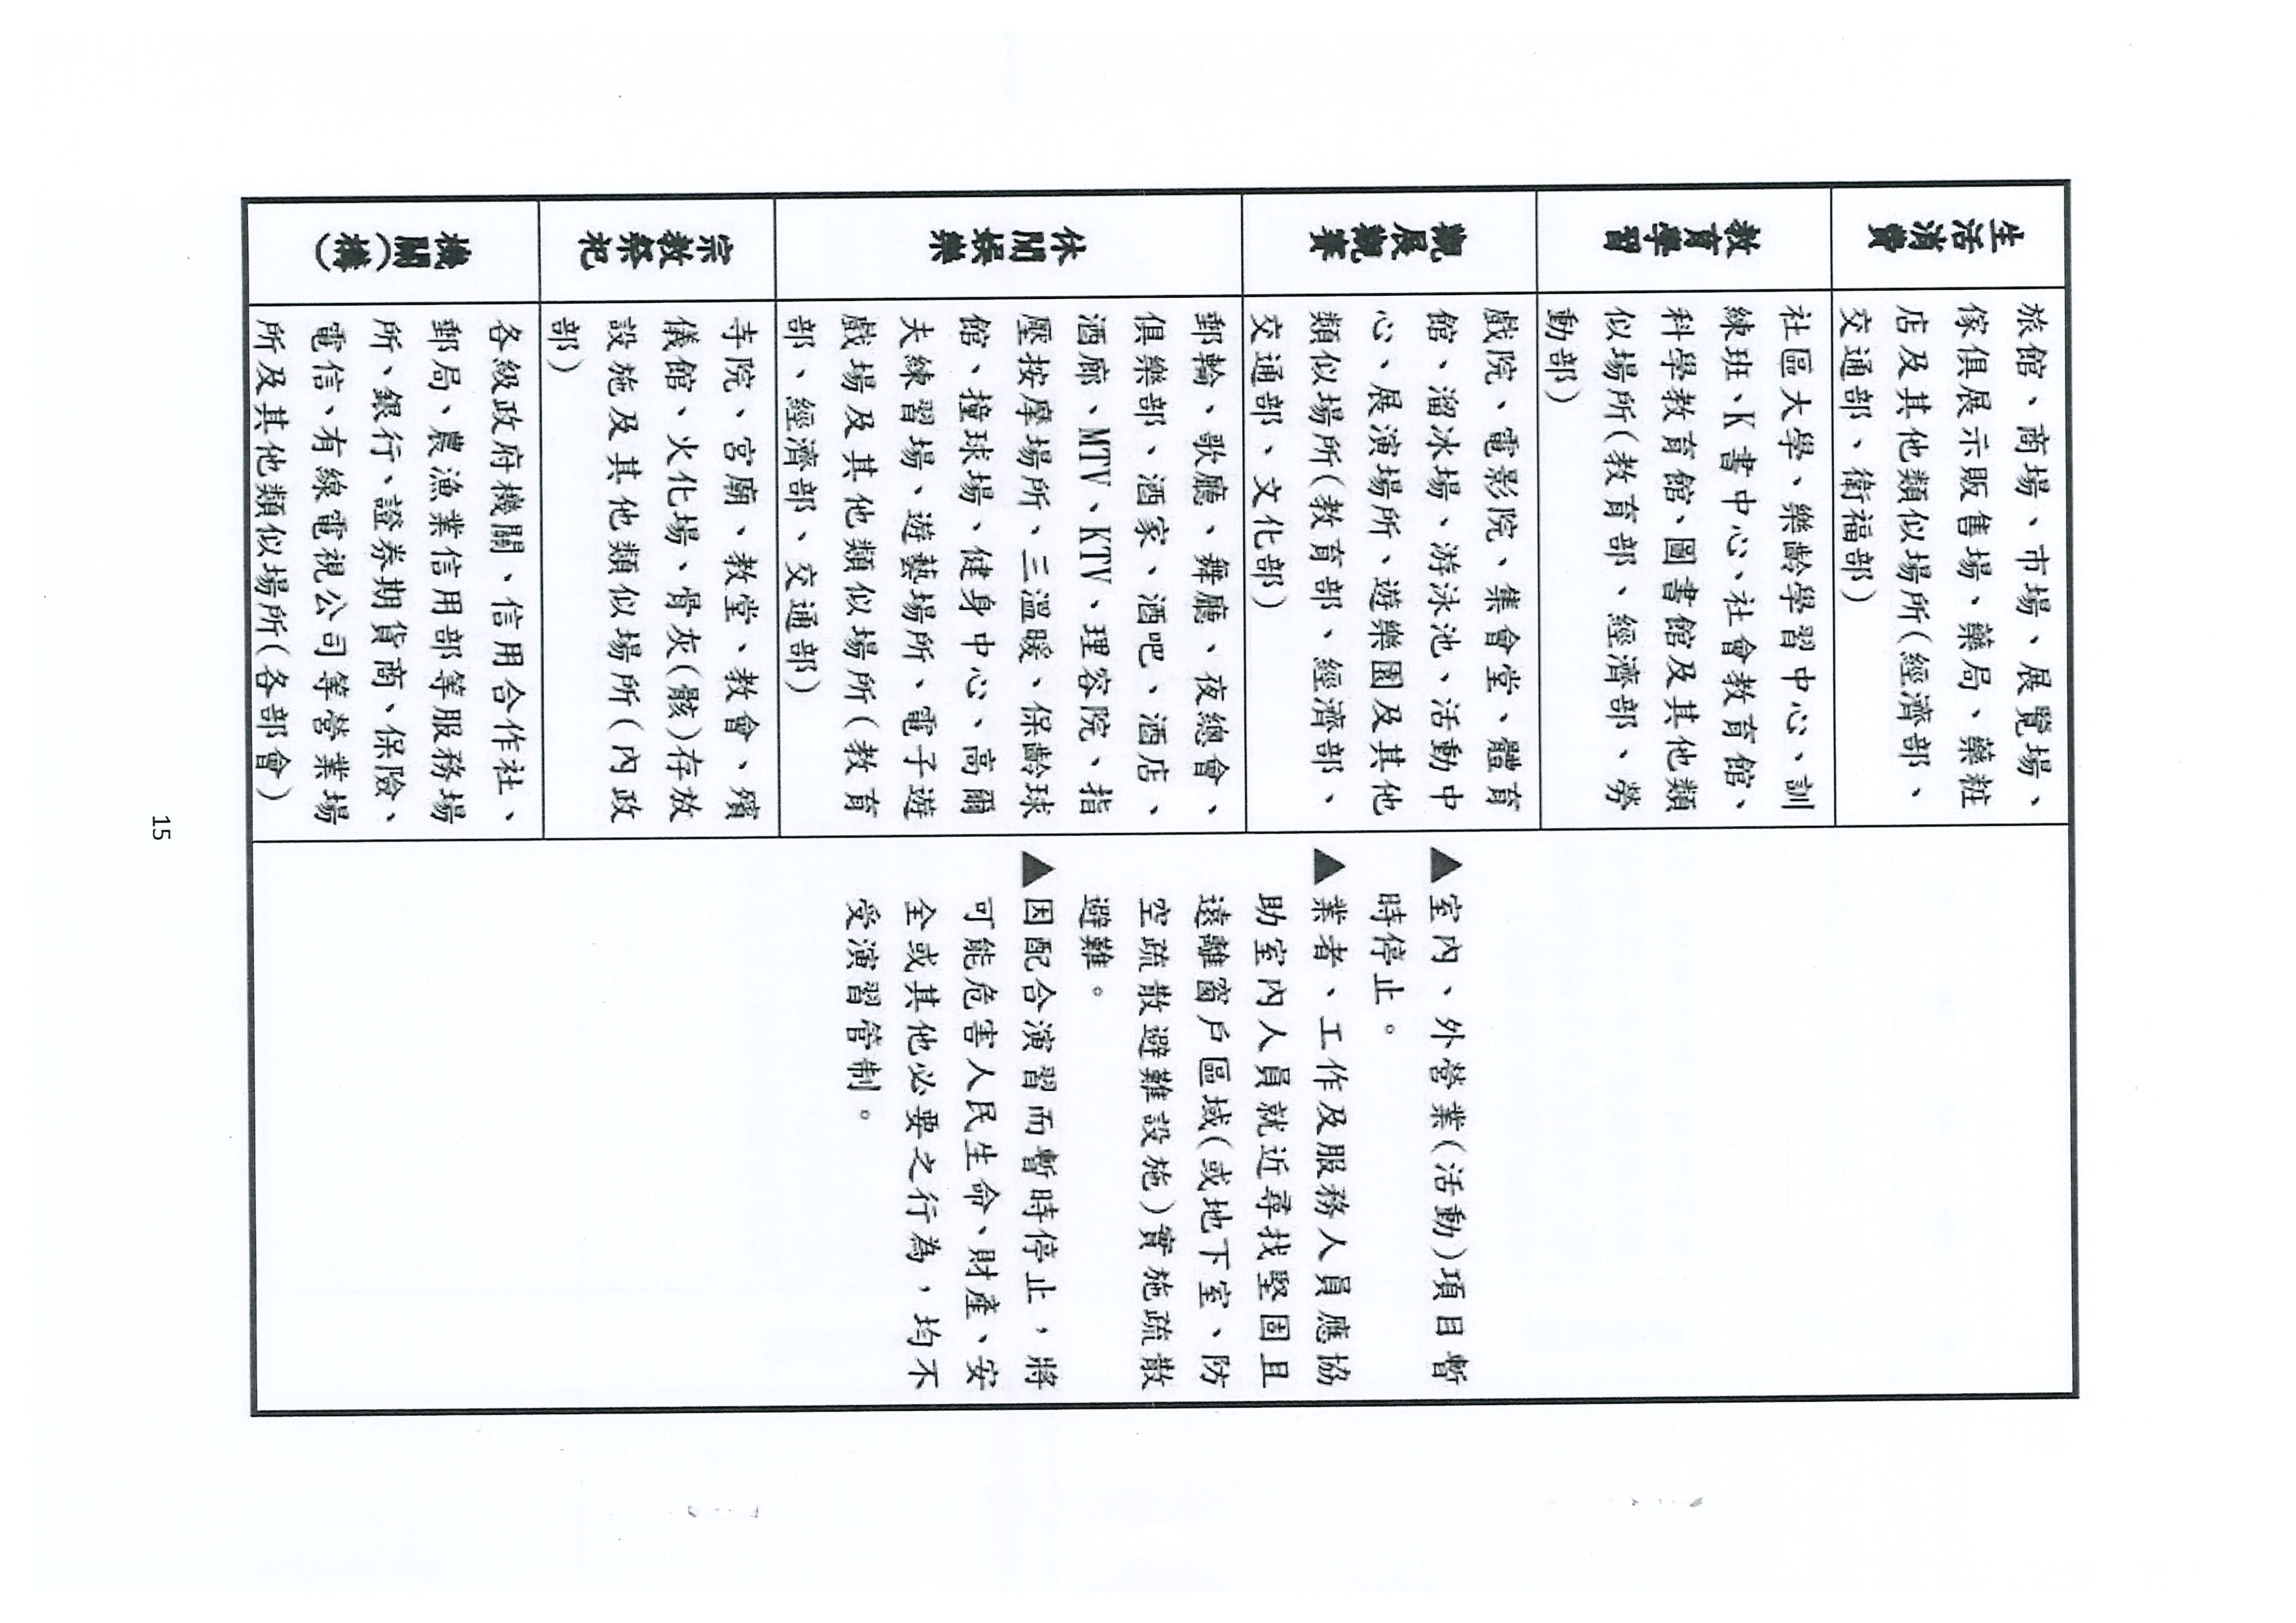 生活消費
旅館、商場、市場、展覽場、
傢俱展示販售場、藥局、藥粧
店及其他類似場所(經濟部、
交通部、衛福部)
教育學習
社區大學、樂齡學習中心、訓
練班、K書中心、社會教育館、
科學教育館、圖書館及其他類
似場所(教育部、經濟部、勞
動部)
觀展觀賽
戲院、電影院、集會堂、體育
館、溜冰場、游泳池、活動中
心、展演場所、遊樂園及其他
類似場所(教育部、經濟部、
交通部、文化部)
休閒娛樂
郵輪、歌廳、舞廳、夜總會、
俱樂部、酒家、酒吧、酒店、
酒廊、MTV、KTV、理容院、指
壓按摩場所、三溫暖、保齡球
館、撞球場、健身中心、高爾
夫練習場、遊藝場所、電子遊
戲場及其他類似場所(教育
部、經濟部、交通部)
宗教祭祀
寺院、宮廟、教堂、教會、殯
儀館、火化場、骨灰(骸)存放
設施及其他類似場所(內政
部)
機關(構)
各級政府機關、信用合作社、
郵局、農漁業信用部等服務場
所、銀行、證券期貨商、保險、
電信、有線電視公司等營業場
所及其他類似場所(各部會)
▲室內、外營業(活動)項目暫
時停止。
▲業者、工作及服務人員應協
助室內人員就近尋找堅固且
遠離窗戶區域(或地下室、防
空疏散避難設施)實施疏散
避難。
▲因配合演習而暫時停止,將
可能危害人民生命、財產、安
全或其他必要之行為,均不
受演習管制。
15